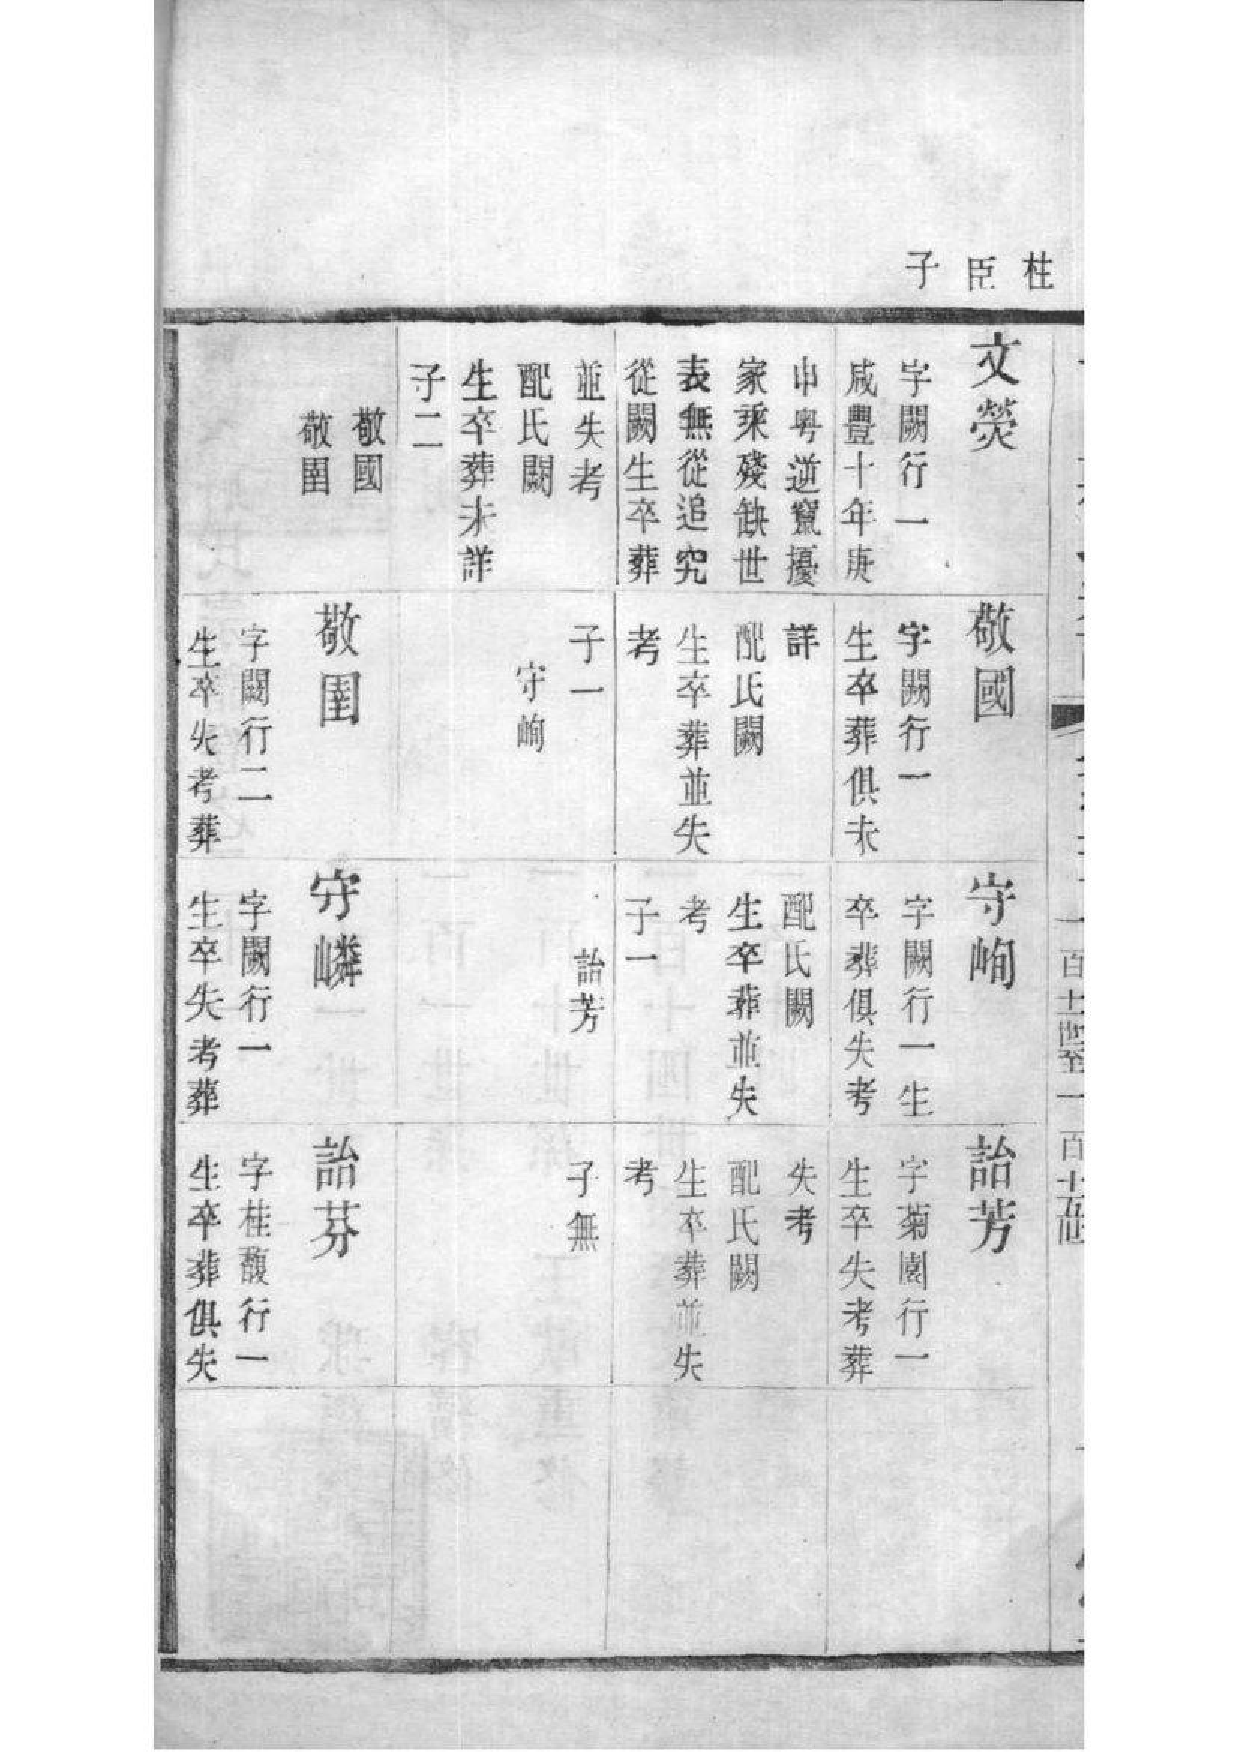 柱臣子
文熒
字闕行一
咸豐十年庚
申粤逆竄擾
家乘殘缺世
表無從追究
從闕生卒葬
並失考
配氏闕
生卒葬未詳
子二
敬國
敬圉
敬國
字闕行一
生卒葬俱未
詳
配氏闕
生卒葬並失
考
子一
守峋
敬圉
字闕行二
生卒失考葬
守峋
字闕行一生
卒葬俱失考
配氏闕
生卒葬並失
考
子一
詒芳
守嶙
字闕行一
生卒失考葬
詒芳
字菊園行一
生卒失考葬
失考
配氏闕
生卒葬並失
考
子無
詒芬
字桂馥行一
生卒葬俱失
一百十四至一百十八世